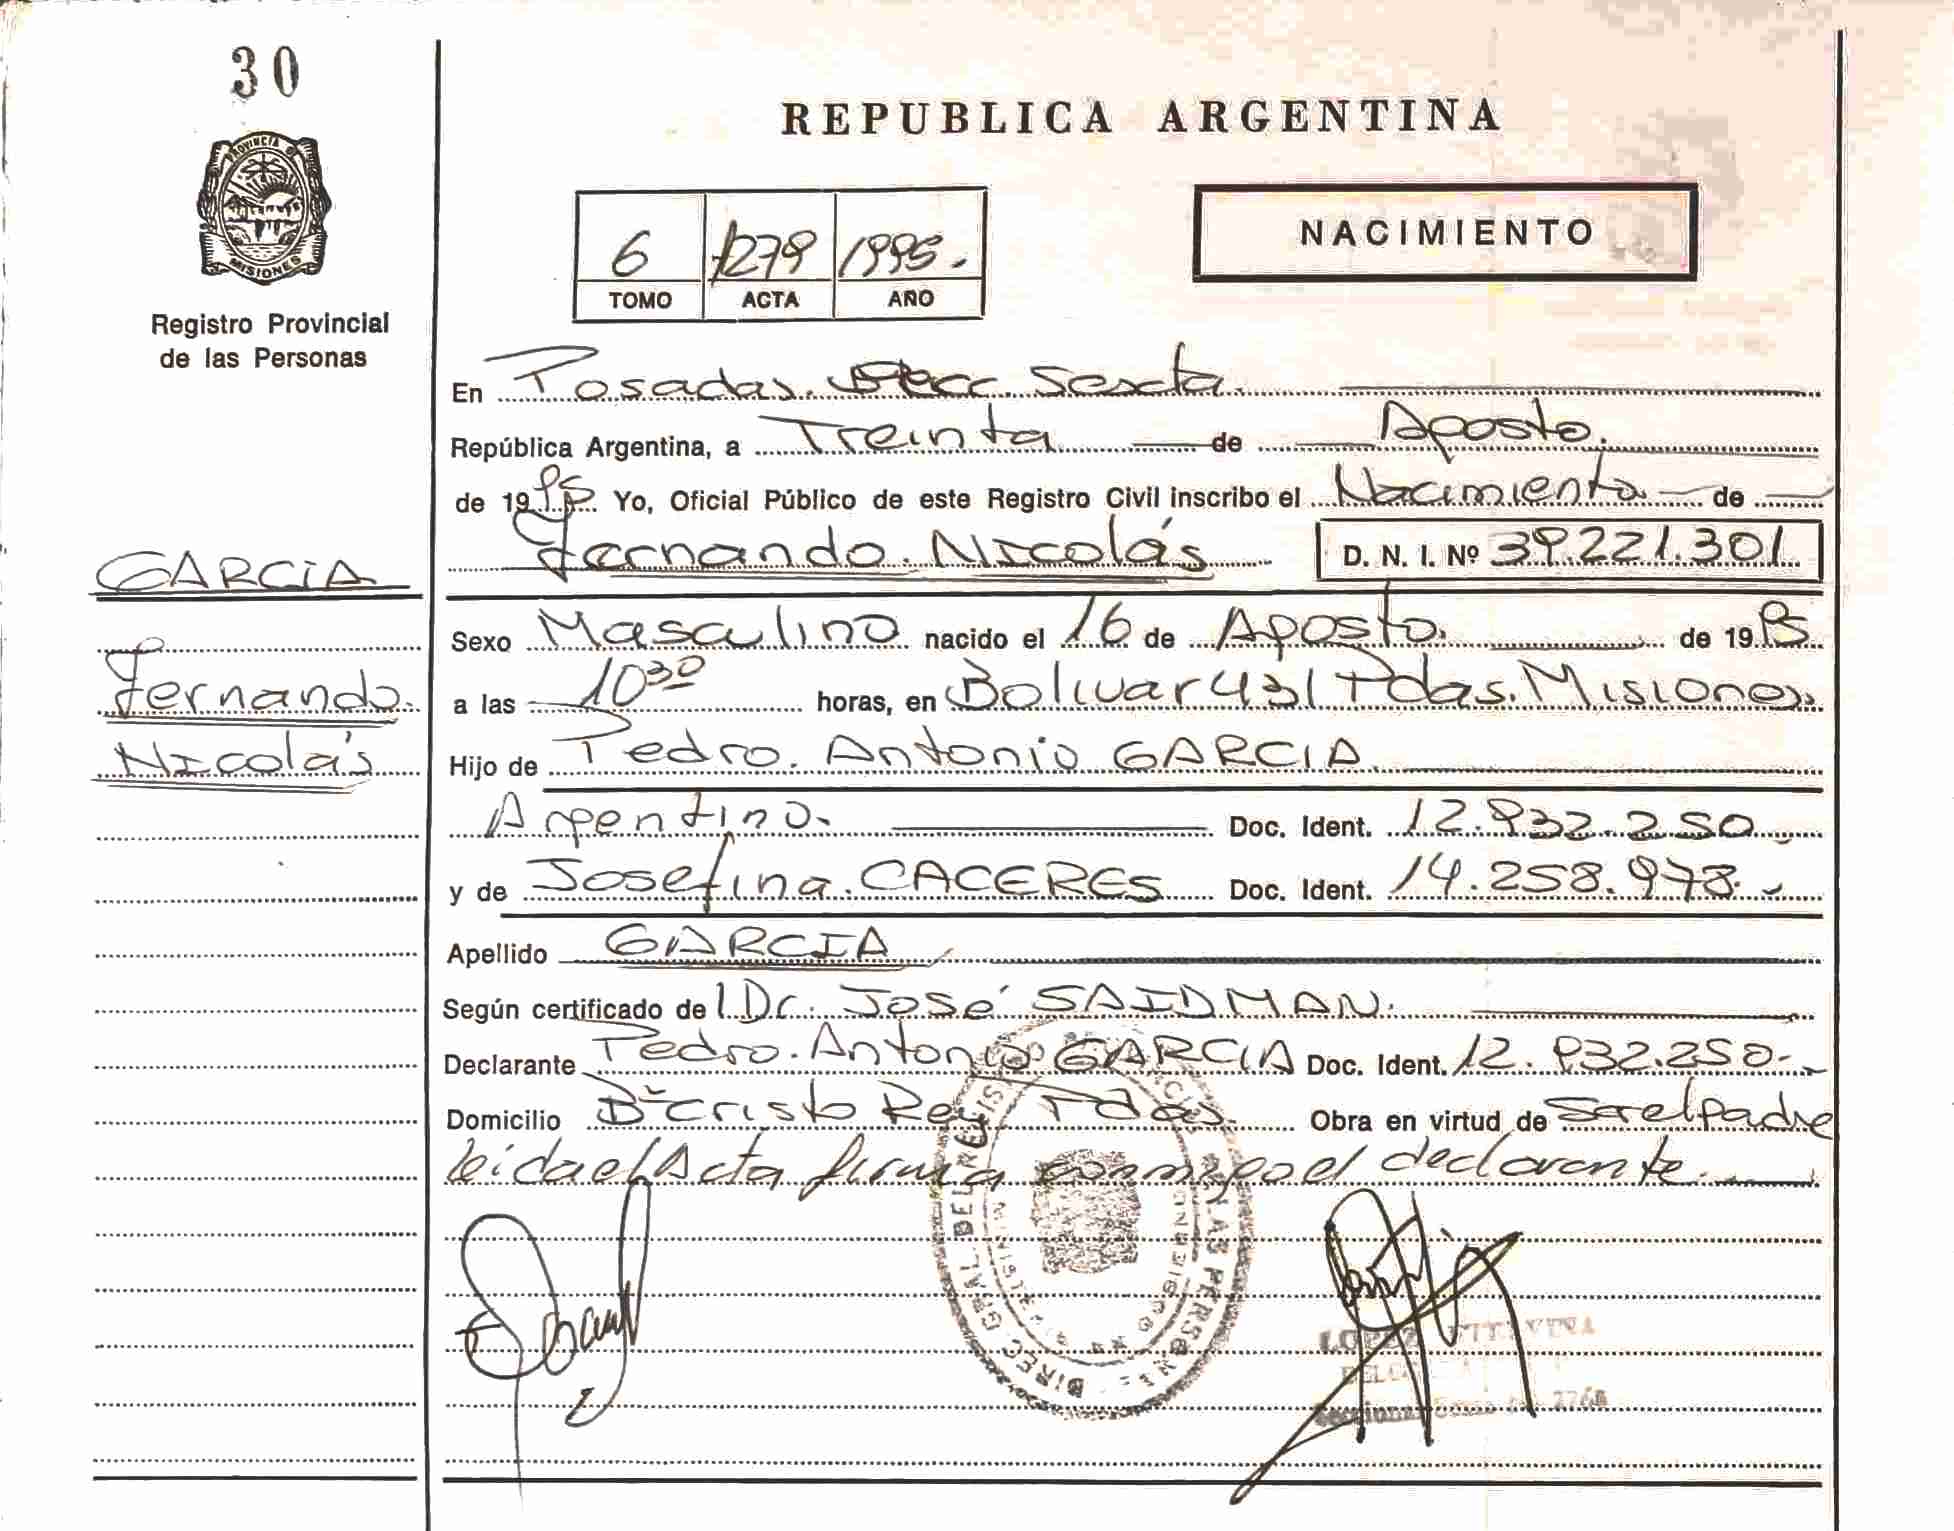 30
PROVINCIA DE
MISIONES
Registro Provincial
de las Personas
REPUBLICA ARGENTINA
NACIMIENTO
6 1279 1995.
TOMO ACTA AÑO
En Posadas. Secc. Sexta.
República Argentina, a Treinta de Agosto.
de 1995 Yo, Oficial Público de este Registro Civil inscribo el Nacimiento de
Fernando. Nicolás D. N. I. Nº 39.221.301
GARCIA
Fernando.
Nicolás
Sexo Masculino nacido el 16 de Agosto. de 1995
a las 10 30 horas, en Bolivar 431 Pdas. Misiones.
Hijo de Pedro. Antonio GARCIA.
Argentino. Doc. Ident. 12.932.250
y de Josefina. CACERES Doc. Ident. 14.258.978.
Apellido GARCIA
Según certificado de l Dr. José SAIDMAN.
Declarante Pedro. Antonio GARCIA Doc. Ident. 12.932.250.
Domicilio Bº Cristo Rey Pdas. Obra en virtud de Ser el padre
leida el Acta firma conmigo el declarante.
DIREC. GRAL. DEL REGIS LAS PERSONAS
MINISTERIO GOBIERNO
LOPEZ
Seccional Sexta